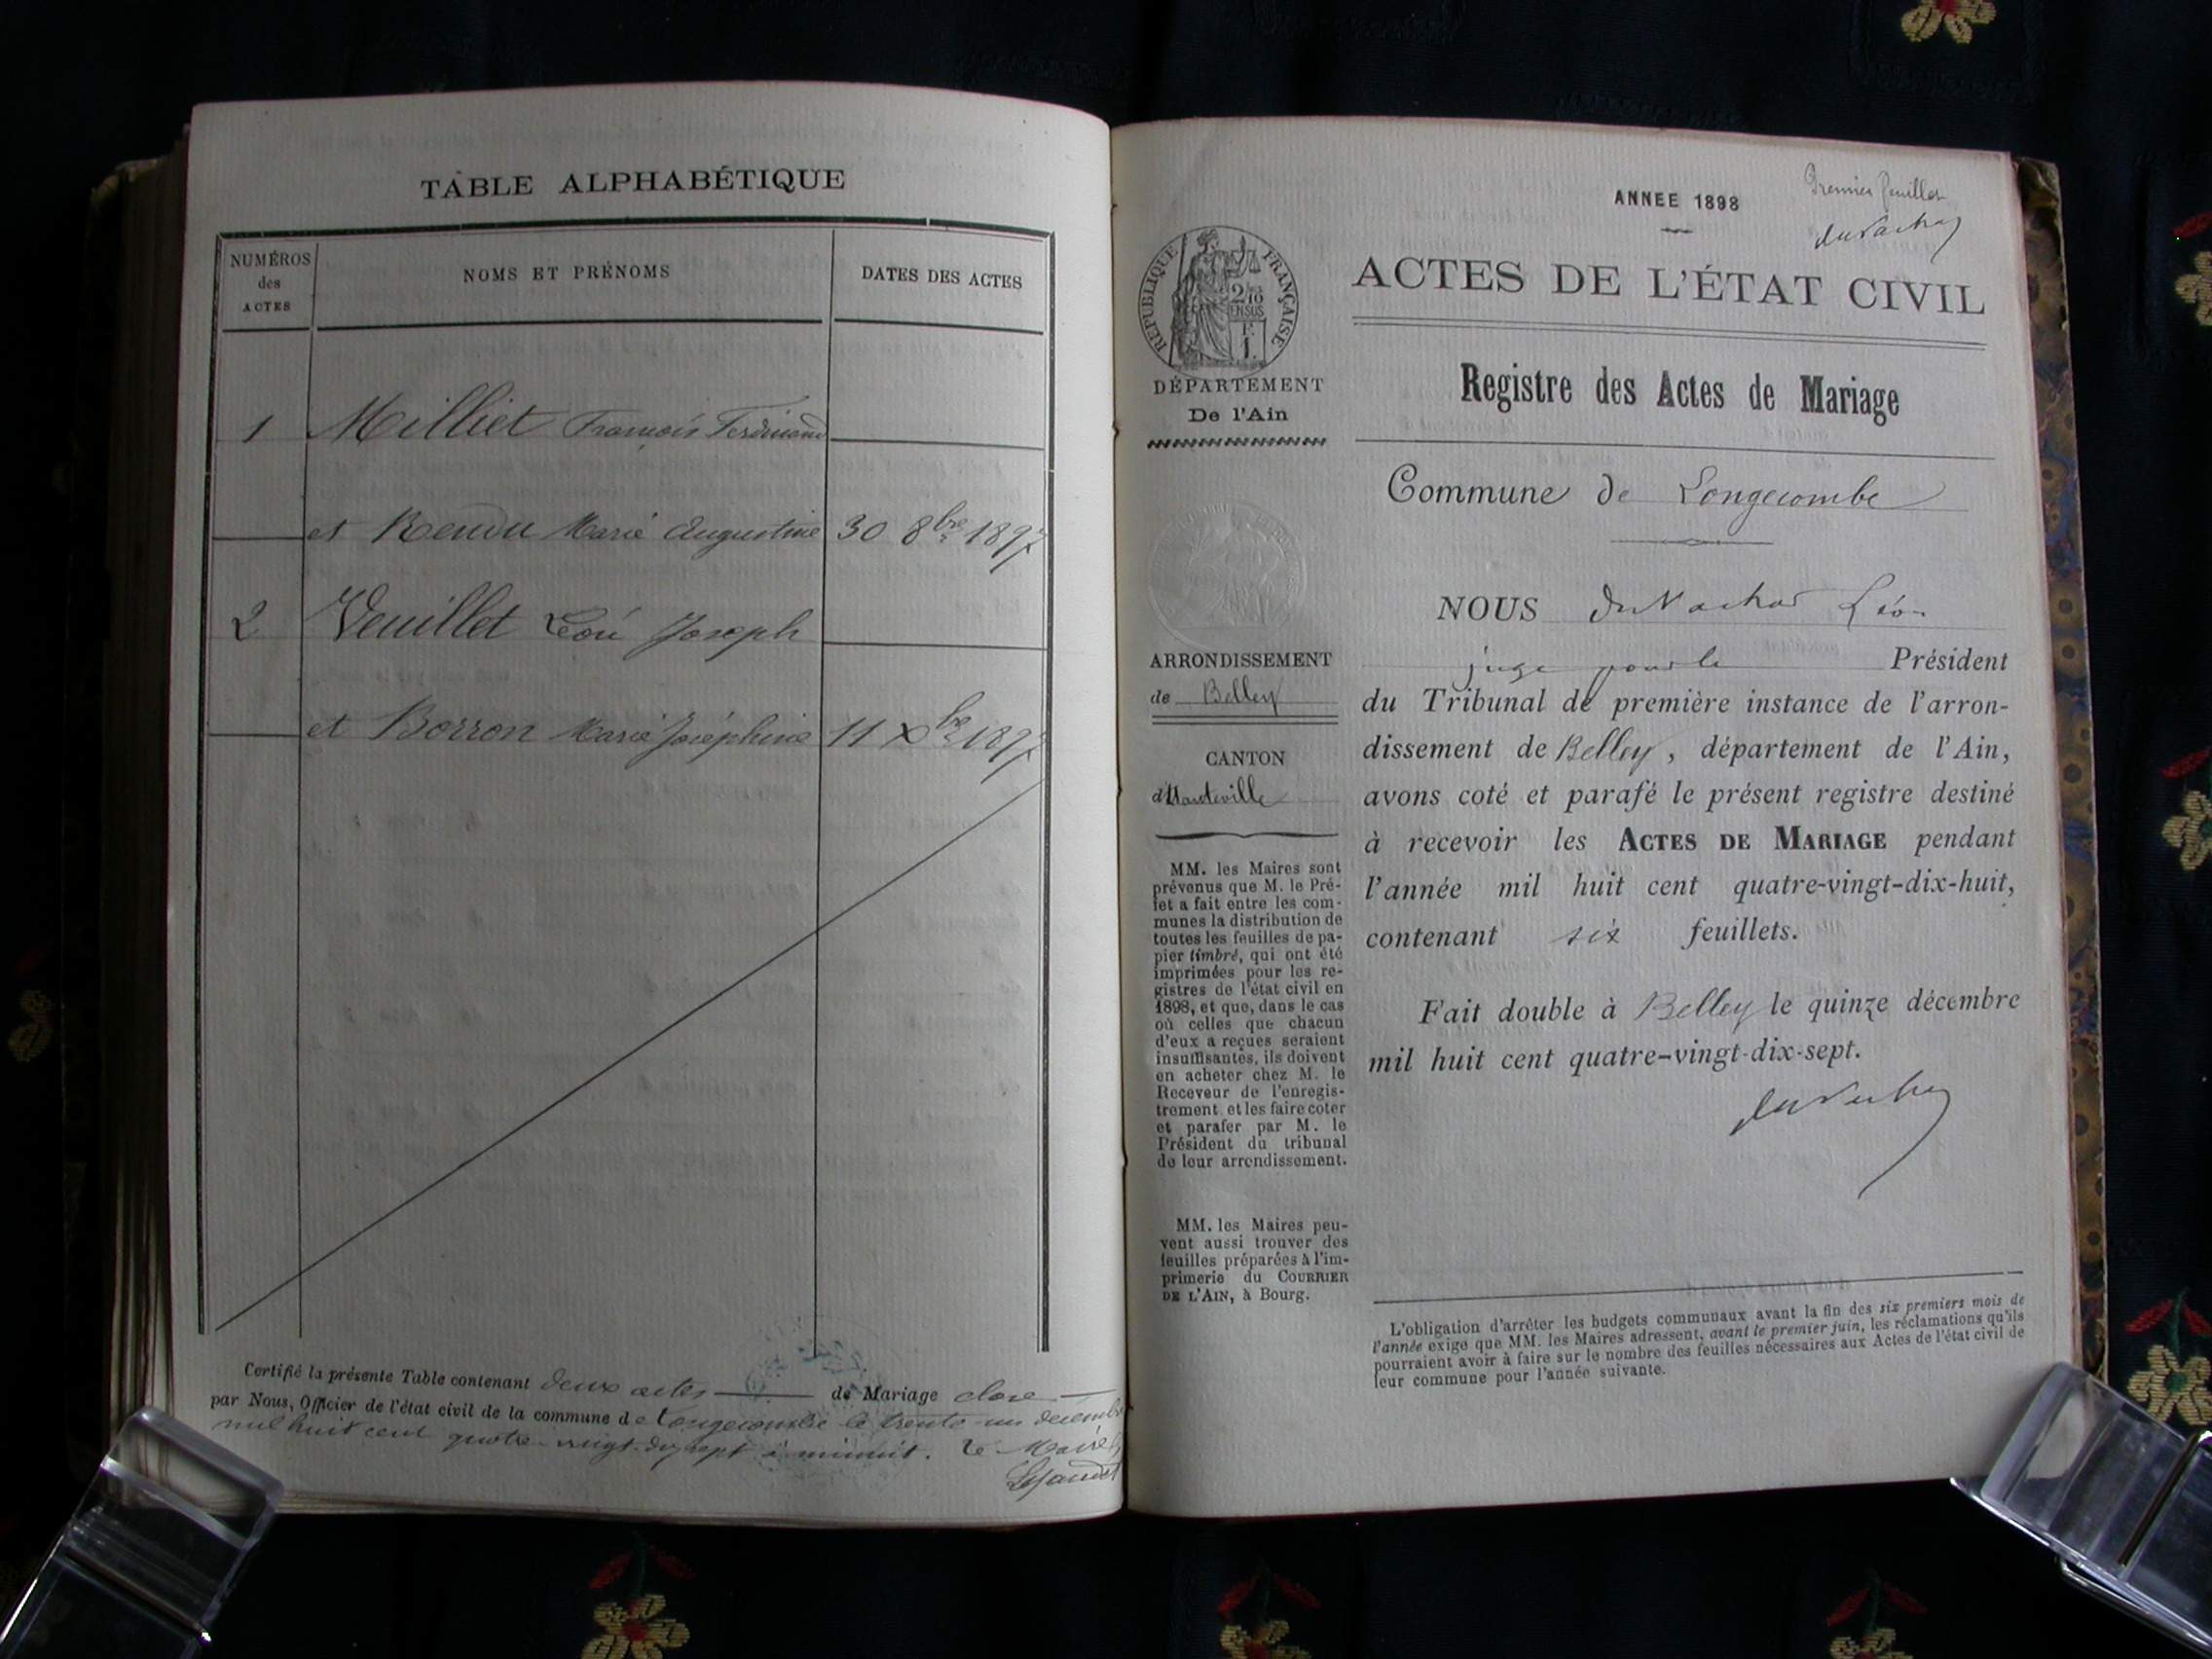 TABLE ALPHABÉTIQUE
NUMÉROS
des
ACTES
NOMS ET PRÉNOMS
DATES DES ACTES
1 Milliet François Ferdinand
et Rendu Marie Augustine 30 8bre 1897
2 Veuillet Léon Joseph
et Borron Marie Joséphine 11 Xbre 1897
Certifié la présente Table contenant deux actes de Mariage close
par Nous, Officier de l'état civil de la commune de Longecombe le trente-un décembre
mil huit cent quatre-vingt-dix sept à minuit. Le Maire
ANNEE 1898
Premier feuillet
RÉPUBLIQUE FRANÇAISE
ACTES DE L'ÉTAT CIVIL
Registre des Actes de Mariage
DÉPARTEMENT
De l'Ain
Commune de Longecombe
NOUS Léon
juge pour le Président
du Tribunal de première instance de l'arron-
dissement de Belley, département de l'Ain,
avons coté et parafé le présent registre destiné
à recevoir les ACTES DE MARIAGE pendant
l'année mil huit cent quatre-vingt-dix-huit,
contenant six feuillets.
Fait double à Belley le quinze décembre
mil huit cent quatre-vingt-dix-sept.
ARRONDISSEMENT
de Belley
CANTON
d'Hauteville
MM. les Maires sont
prévenus que M. le Pré-
fet a fait entre les com-
munes la distribution de
toutes les feuilles de pa-
pier timbré, qui ont été
imprimées pour les re-
gistres de l'état civil en
1898, et que, dans le cas
où celles que chacun
d'eux a reçues seraient
insuffisantes, ils doivent
en acheter chez M. le
Receveur de l'enregis-
trement et les faire coter
et parafer par M. le
Président du tribunal
de leur arrondissement.
MM. les Maires peu-
vent aussi trouver des
feuilles préparées à l'im-
primerie du COURRIER
DE L'AIN, à Bourg.
L'obligation d'arrêter les budgets communaux avant la fin des six premiers mois de
l'année exige que MM. les Maires adressent, avant le premier juin, les réclamations qu'ils
pourraient avoir à faire sur le nombre des feuilles nécessaires aux Actes de l'état civil de
leur commune pour l'année suivante.